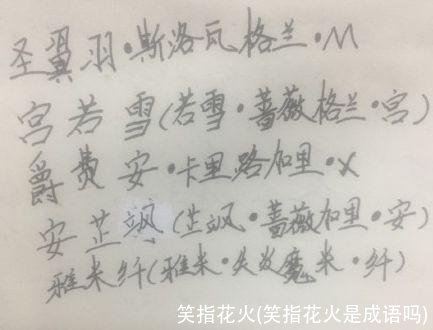 圣翼羽·斯洛瓦格兰·M
宫若雪(若雪·蔷薇格兰·宫)
爵费安·卡里路加里·X
安芷飒(芷飒·蔷薇加里·安)
雅米纤(雅米·失发魔米·纤)
笑指花火(笑指花火是成语吗)